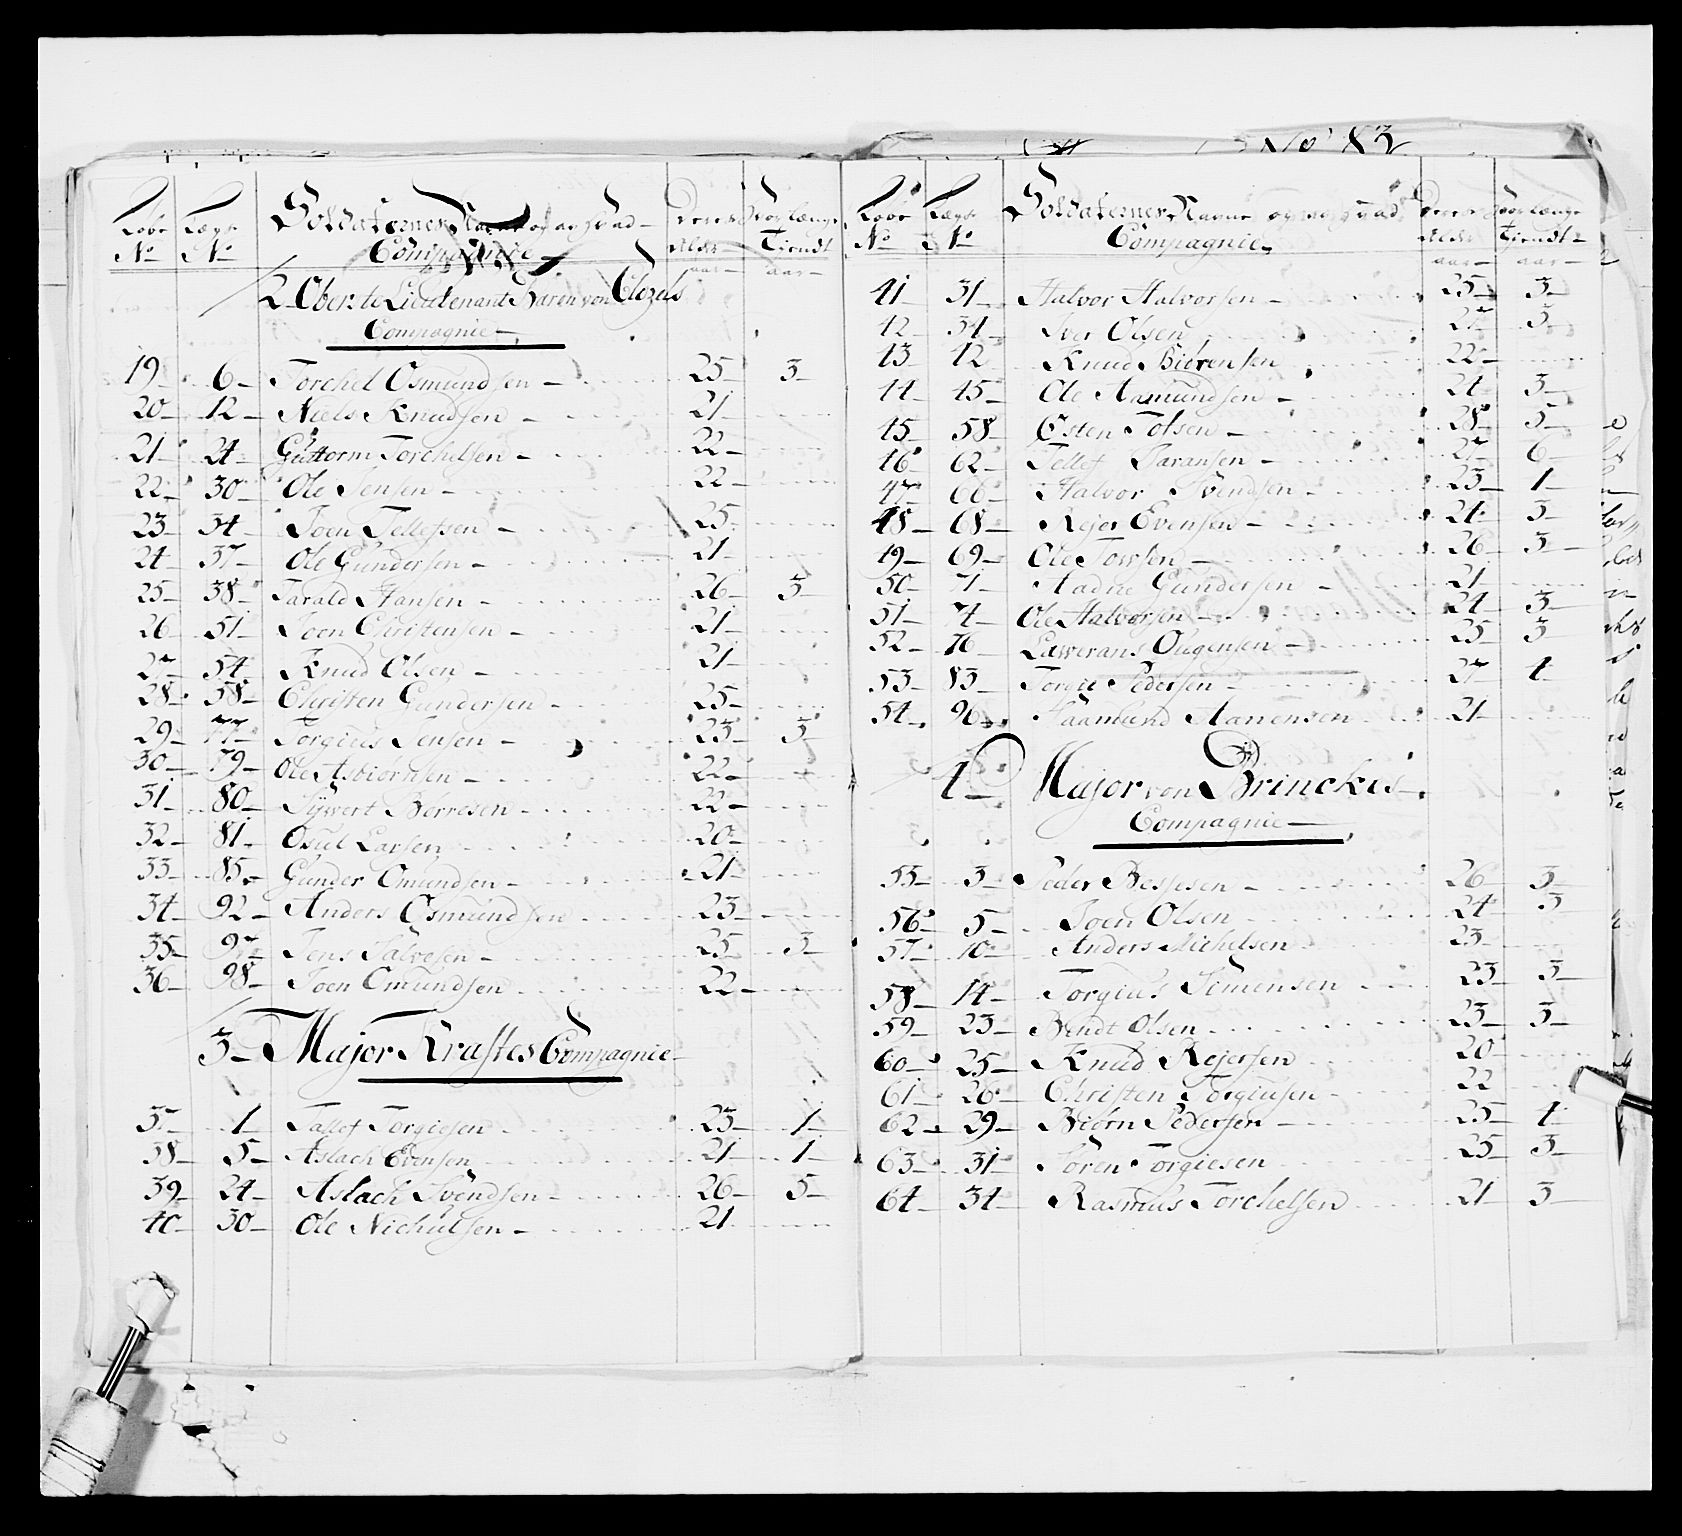 No 83
Løbe No Lægs No Soldaternes Navne og af hvad Compagnie Deres Alder aar Hvor længe Tiendt aar
2 Oberste Lieutenant Baron von Clozels
Compagnie
19 6 Torchel Osmundsen 25 3
20 12 Niels Knudsen 21
21 24 Guttorm Torchelsen 22
22 30 Ole Jensen 22
23 34 Joen Tellefsen 25
24 37 Ole Gundersen 21
25 38 Tarald Hansen 26 3
26 51 Joen Christensen 21
27 54 Knud Olsen 21
28 58 Christen Gundersen 25
29 77 Torgius Jensen 23 3
30 79 Ole Asbiørnsen 22
31 80 Syvert Børresen 22
32 81 Osul Larsen 20
33 85 Gunder Omundsen 21
34 92 Anders Osmundsen 23
35 97 Jens Salvesen 25 3
36 98 Joen Omundsen 22
3 Major Kraftes Compagnie
37 1 Tallef Torgiesen 23 1
38 5 Aslach Evensen 21 1
39 24 Aslach Svendsen 26 5
40 30 Ole Nichulsen 21
Løbe No Lægs No Soldaternes Navne og af hvad Compagnie Deres Alder aar Hvor længe Tiendt aar
41 31 Halvor Halvorsen 25 3
42 34 Iver Olsen 27 3
43 42 Knud Biørensen 22
44 45 Ole Asmundsen 24 3
45 58 Østen Tolsen 28 5
46 62 Tellef Taransen 27 6
47 66 Halvor Svendsen 23 1
48 68 Rejer Evensen 24 3
49 69 Ole Towsen 26 3
50 71 Aadne Gundersen 21
51 74 Ole Halvorsen 24 3
52 76 Lawerans Ougensen 25 3
53 83 Torgie Pedersen 27 4
54 96 Haamund Aanensen 21
4 Major von Brinckes
Compagnie
55 3 Peder Bessesen 26 3
56 5 Joen Olsen 24 3
57 10 Anders Michelsen 23
58 14 Torgius Simensen 23 3
59 23 Bendt Olsen 23 3
60 25 Knud Rejersen 20
61 26 Christen Torgiusen 22
62 29 Biørn Pedersen 25 4
63 31 Søren Torgiesen 25 3
64 34 Rasmus Torchelsen 21 3